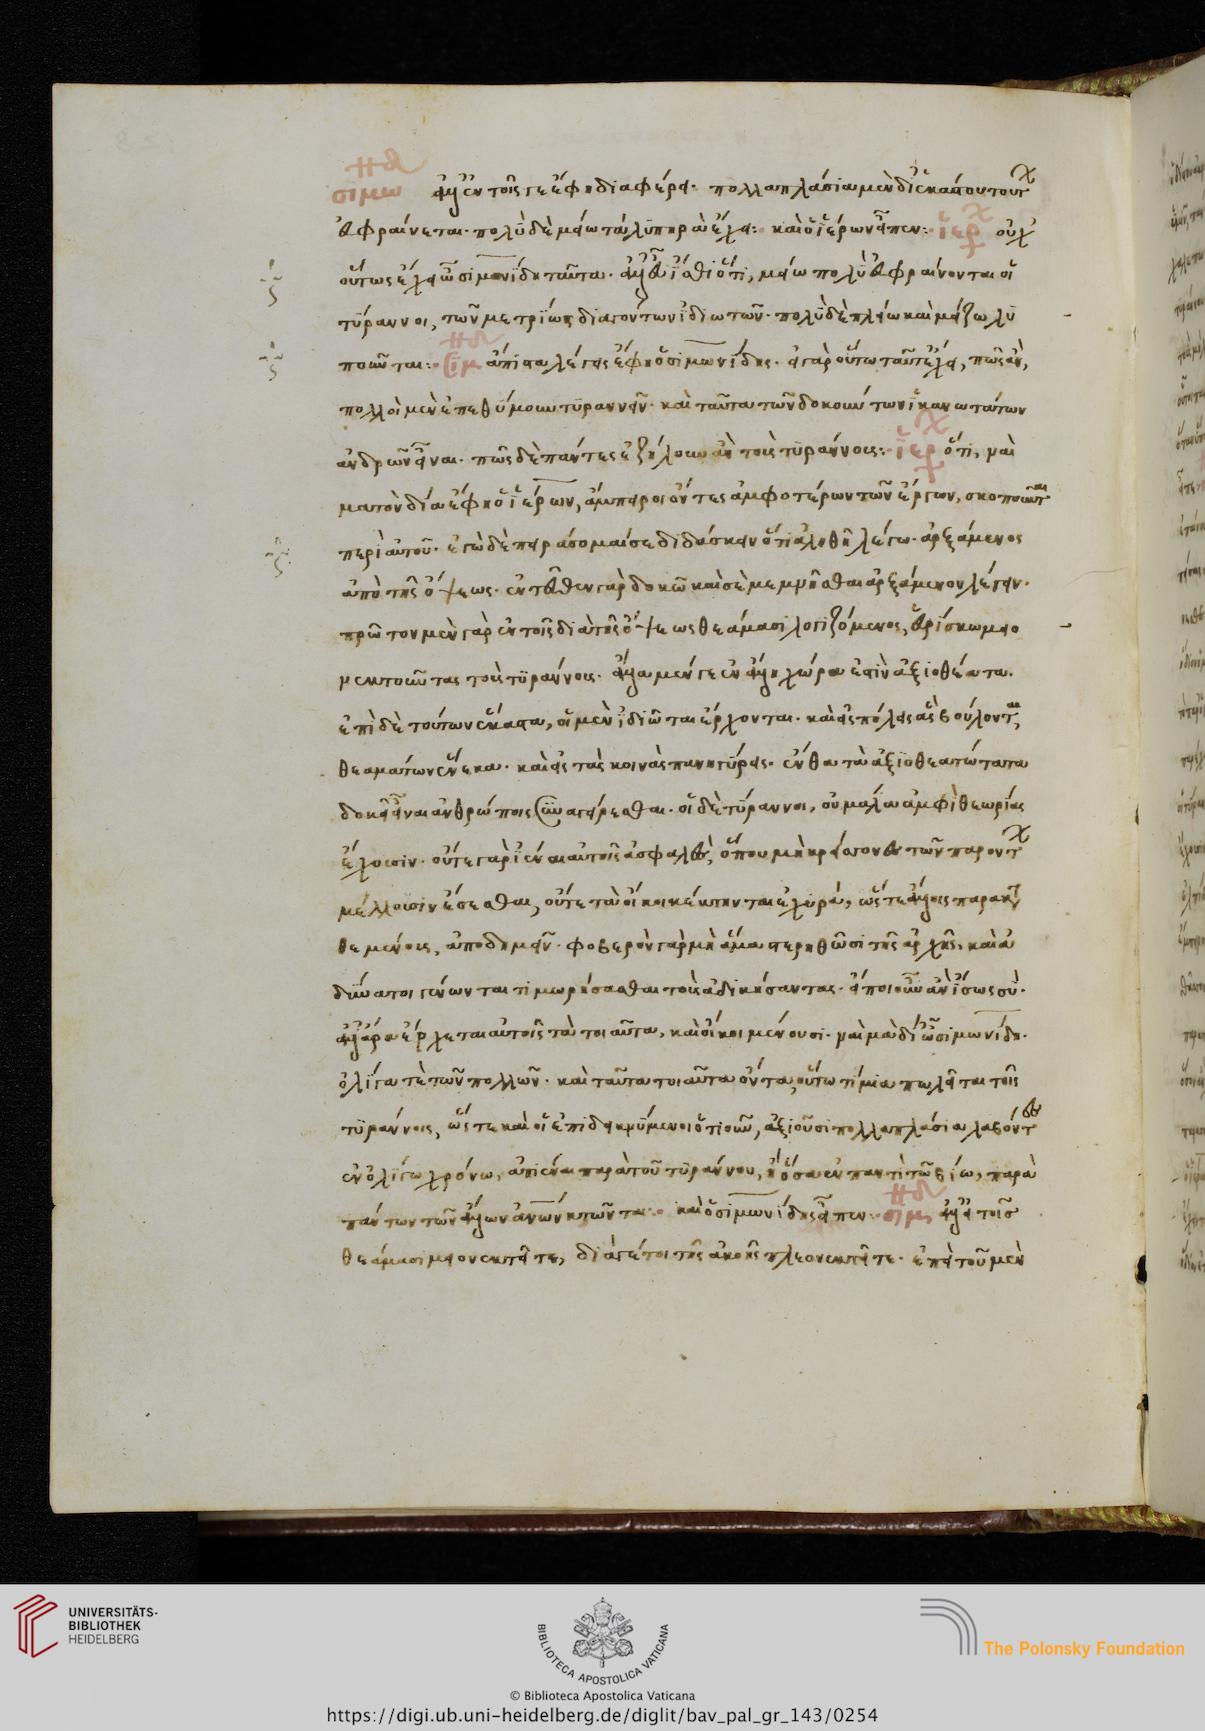 σιμω ἀλλ' ἐν τοῖς γε ἔφη διαφέρει· πολλαπλάσια μὲν δι' ἑκάστου τούτων
εὐφραίνεται. πολὺ δὲ μείω τὰ λυπηρὰ ἔχει: καὶ ὁ ἱέρων εἶπεν: ἱερ οὐχ
οὕτως ἔχει ὦ σιμωνίδη ταῦτα. ἀλλ' εὖ ἴσθι ὅτι, μείω πολὺ εὐφραίνονται οἱ
τύραννοι, τῶν μετρίως διαγόντων ἰδιωτῶν. πολὺ δὲ πλείω καὶ μείζω λυ
ποῦνται: σιμ ἄπιστα λέγεις ἔφη ὁ σιμωνίδης. εἰ γὰρ οὕτω ταῦτ' ἔχει, πῶς ἂν,
πολλοὶ μὲν ἐπεθύμουν τυραννεῖν. καὶ ταῦτα τῶν δοκούντων ἱκανωτάτων
ἀνδρῶν εἶναι. πῶς δὲ πάντες ἐζήλουν ἂν τοὺς τυράννους: ἱερ ὅτι, ναὶ
μα τὸν δία ἔφη ὁ ἱέρων, ἄπειροι ὄντες ἀμφοτέρων τῶν ἔργων, σκοποῦνται
περὶ αὐτοῦ. ἐγὼ δὲ πειράσομαί σε διδάσκειν ὅτι ἀληθῆ λέγω. ἀρξάμενος
ἀπὸ τῆς ὄψεως. ἐντεῦθεν γὰρ δοκῶ καὶ σὲ μεμνῆσθαι ἀρξάμενον λέγειν.
πρῶτον μὲν γὰρ ἐν τοῖς διὰ τῆς ὄψεως θεάμασι λογιζόμενος, εὑρίσκω μειο
νεκτοῦντας τοὺς τυράννους. ἄλλα μέν γε ἐν ἄλλη χώρα ἐστὶν ἀξιοθέατα.
ἐπὶ δὲ τούτων ἕκαστα, οἱ μὲν ἰδιῶται ἔρχονται. καὶ εἰς πόλεις ἃς βούλονται
θεαμάτων ἕνεκα. καὶ εἰς τὰς κοινὰς πανηγύρεις. ἔνθα τὰ ἀξιοθεατώτατα
δοκεῖ εἶναι ἀνθρώποις συναγείρεσθαι. οἱ δὲ τύραννοι, οὐ μάλα ἀμφὶ θεωρίας
ἔχουσιν. οὔτε γὰρ ἰέναι αὐτοῖς ἀσφαλὲς, ὅπου μὴ κρείττονες τῶν παρόντων
μέλλουσιν ἔσεσθαι, οὔτε τὰ οἴκοι κέκτηνται ἐχυρά, ὥστε ἄλλοις παρακατα
θεμένοις, ἀποδημεῖν. φοβερὸν γὰρ μὴ ἅμα στερηθῶσι τῆς ἀρχῆς. καὶ ἀ
δύνατοι γένωνται τιμωρήσασθαι τοὺς ἀδικήσαντας. εἴποις οὖν ἂν ἴσως σὺ.
ἀλλ' ἄρα ἔρχεται αὐτοῖς τὰ τοιαῦτα, καὶ οἴκοι μένουσι. ναὶ μὰ δί' ὦ σιμωνίδη.
ὀλίγα τὲ τῶν πολλῶν. καὶ ταῦτα τοιαῦτα ὄντα, οὕτω τίμια πωλεῖται τοῖς
τυράννοις, ὥστε καὶ οἱ ἐπιδεικνύμενοι ὁτιοῦν, ἀξιοῦσι πολλαπλάσια λαβόντες
ἐν ὀλίγω χρόνω, ἀπιέναι παρὰ τοῦ τυράννου, ἢ ὅσα ἐν παντὶ τῶ βίω, παρὰ
πάντων τῶν ἄλλων ἀνων κτῶνται: καὶ ὁ σιμωνίδης εἶπεν: σιμ ἀλλ' εἰ τοῖς
θεάμασι μειονεκτεῖτε, διά γέ τοι τῆς ἀκοῆς πλεονεκτεῖτε. ἐπεὶ τοῦ μὲν
UNIVERSITÄTS-
BIBLIOTHEK
HEIDELBERG
BIBLIOTECA APOSTOLICA VATICANA
The Polonsky Foundation
© Biblioteca Apostolica Vaticana
https://digi.ub.uni-heidelberg.de/diglit/bav_pal_gr_143/0254